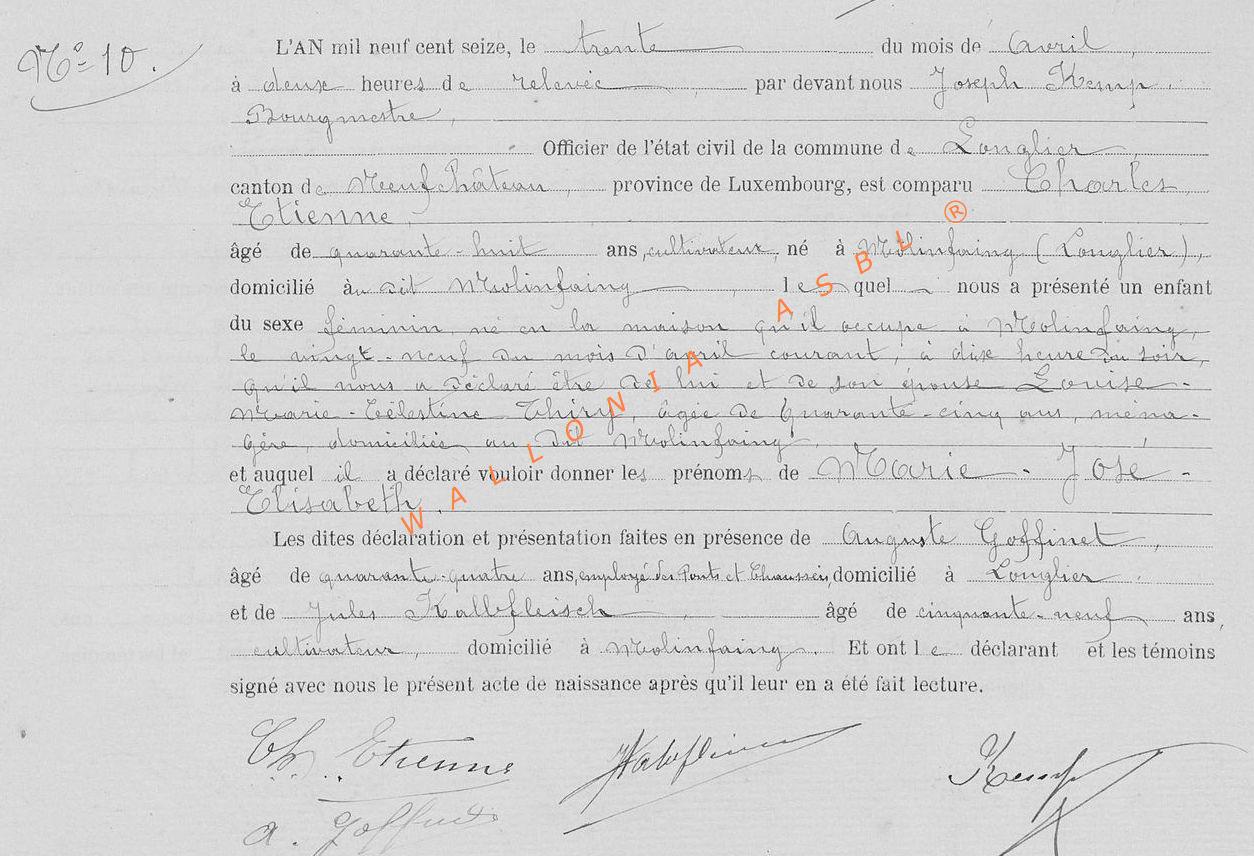 N° 10.
L'AN mil neuf cent seize, le trente du mois de avril,
à deux heures de relevée, par devant nous Joseph Kemp.
Bourgmestre,
Officier de l'état civil de la commune de Longlier,
canton de Neufchâteau, province de Luxembourg, est comparu Charles
Etienne,
âgé de quarante-huit ans, cultivateur, né à Molinfaing (Longlier),
domicilié au dit Molinfaing, lequel nous a présenté un enfant
du sexe féminin, né en la maison qu'il occupe à Molinfaing,
le vingt-neuf du mois d'avril courant, à dix heure du soir,
qu'il nous a déclaré être de lui et de son épouse Louise-
Marie-Célestine Thiry, âgée de quarante-cinq ans, ména-
gère, domiciliée au dit Molinfaing.
et auquel il a déclaré vouloir donner les prénoms de Marie-José-
Elisabeth.
Les dites déclaration et présentation faites en présence de Auguste Goffinet,
âgé de quarante-quatre ans, employé des Ponts et Chaussées, domicilié à Longlier.
et de Jules Kalbfleisch âgé de cinquante-neuf ans,
cultivateur, domicilié à Molinfaing. Et ont le déclarant et les témoins
signé avec nous le présent acte de naissance après qu'il leur en a été fait lecture.
Ch. Etienne Kemp
A. Goffinet
WALLONIA ASBL ®